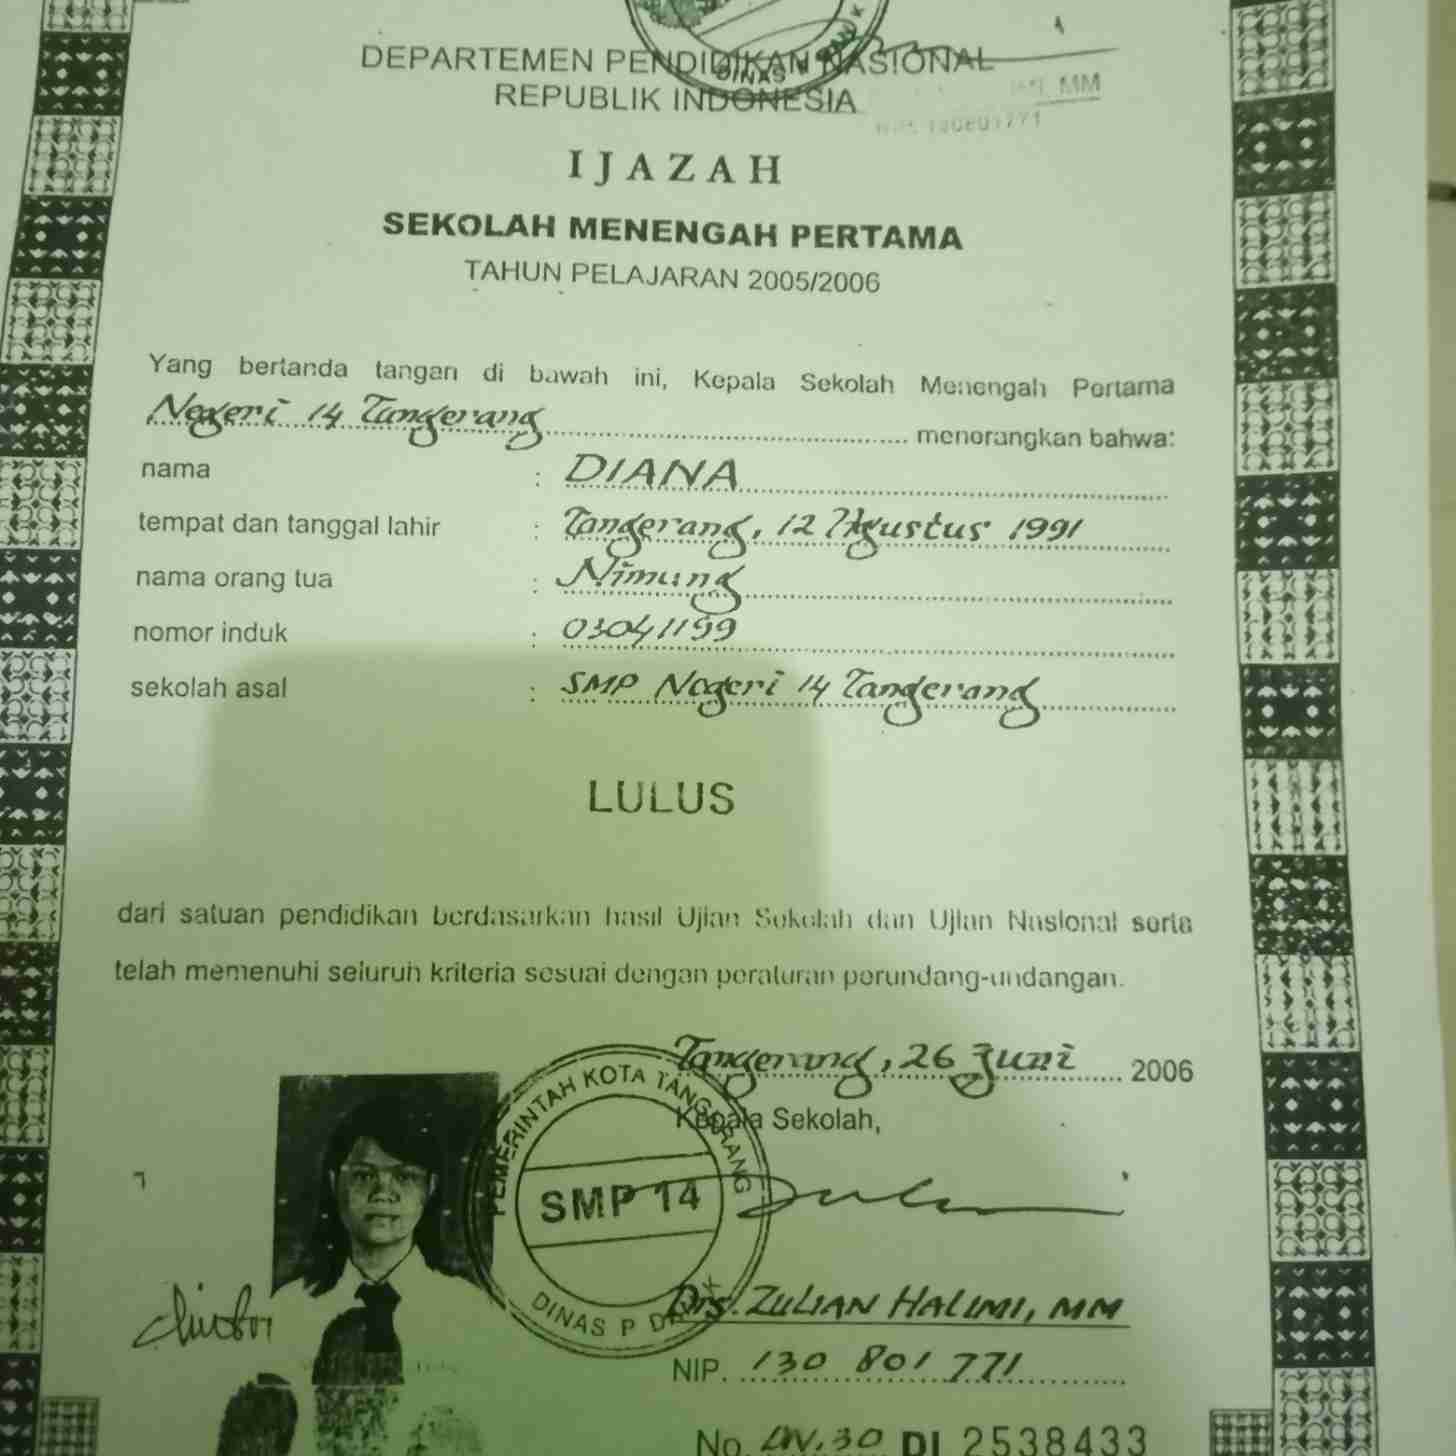 DINAS P DAN K
DEPARTEMEN PENDIDIKAN NASIONAL
REPUBLIK INDONESIA
MM
IJAZAH
SEKOLAH MENENGAH PERTAMA
TAHUN PELAJARAN 2005/2006
Yang bertanda tangan di bawah ini, Kepala Sekolah Menengah Pertama
Negeri 14 Tangerang menerangkan bahwa:
nama : DIANA
tempat dan tanggal lahir : Tangerang, 12 Agustus 1991
nama orang tua : Nimung
nomor induk : 03041199
sekolah asal : SMP Negeri 14 Tangerang
LULUS
dari satuan pendidikan berdasarkan hasil Ujian Sekolah dan Ujian Nasional serta
telah memenuhi seluruh kriteria sesuai dengan peraturan perundang-undangan.
Tangerang, 26 Juni 2006
Kepala Sekolah,
PEMERINTAH KOTA TANGERANG
SMP 14
DINAS P DAN K
Drs. ZULIAN HALIMI, MM
NIP. 130 801 771
No. DN.30 DI 2538433